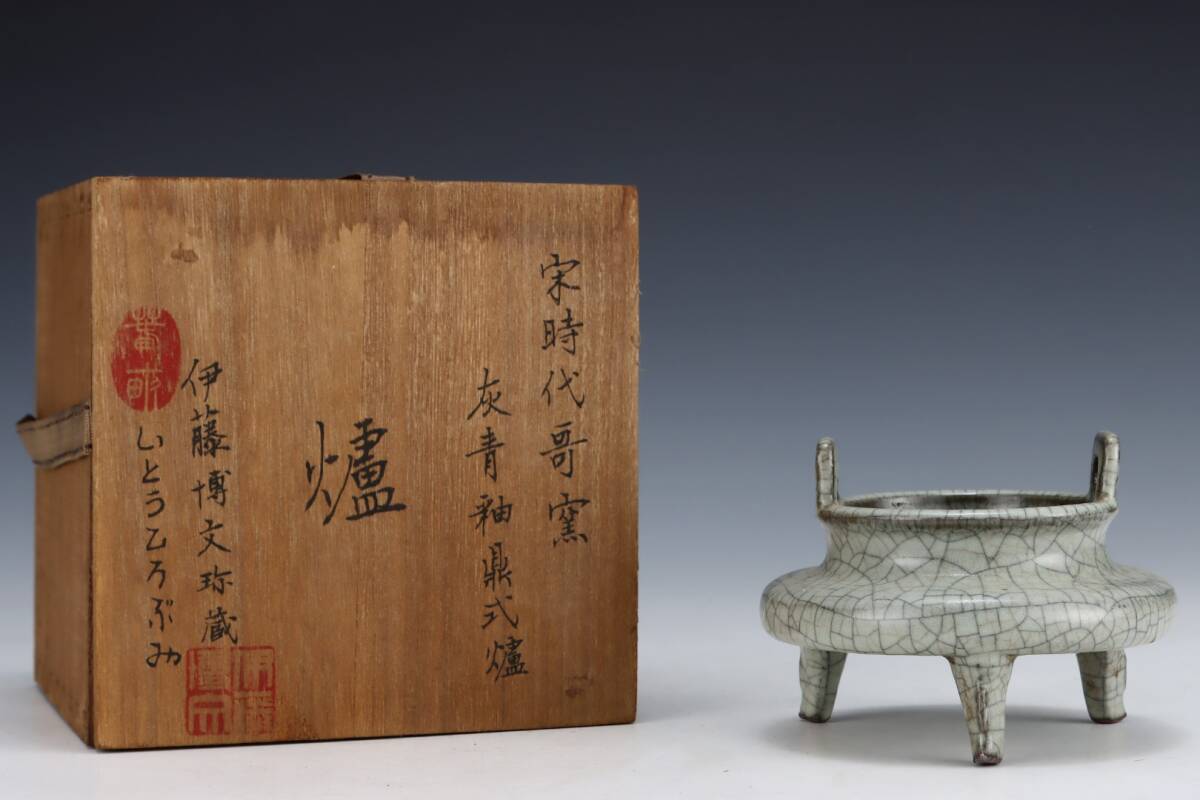 宋時代哥窯
灰青釉鼎式爐
爐
伊藤博文珍蔵
いとうひろぶみ